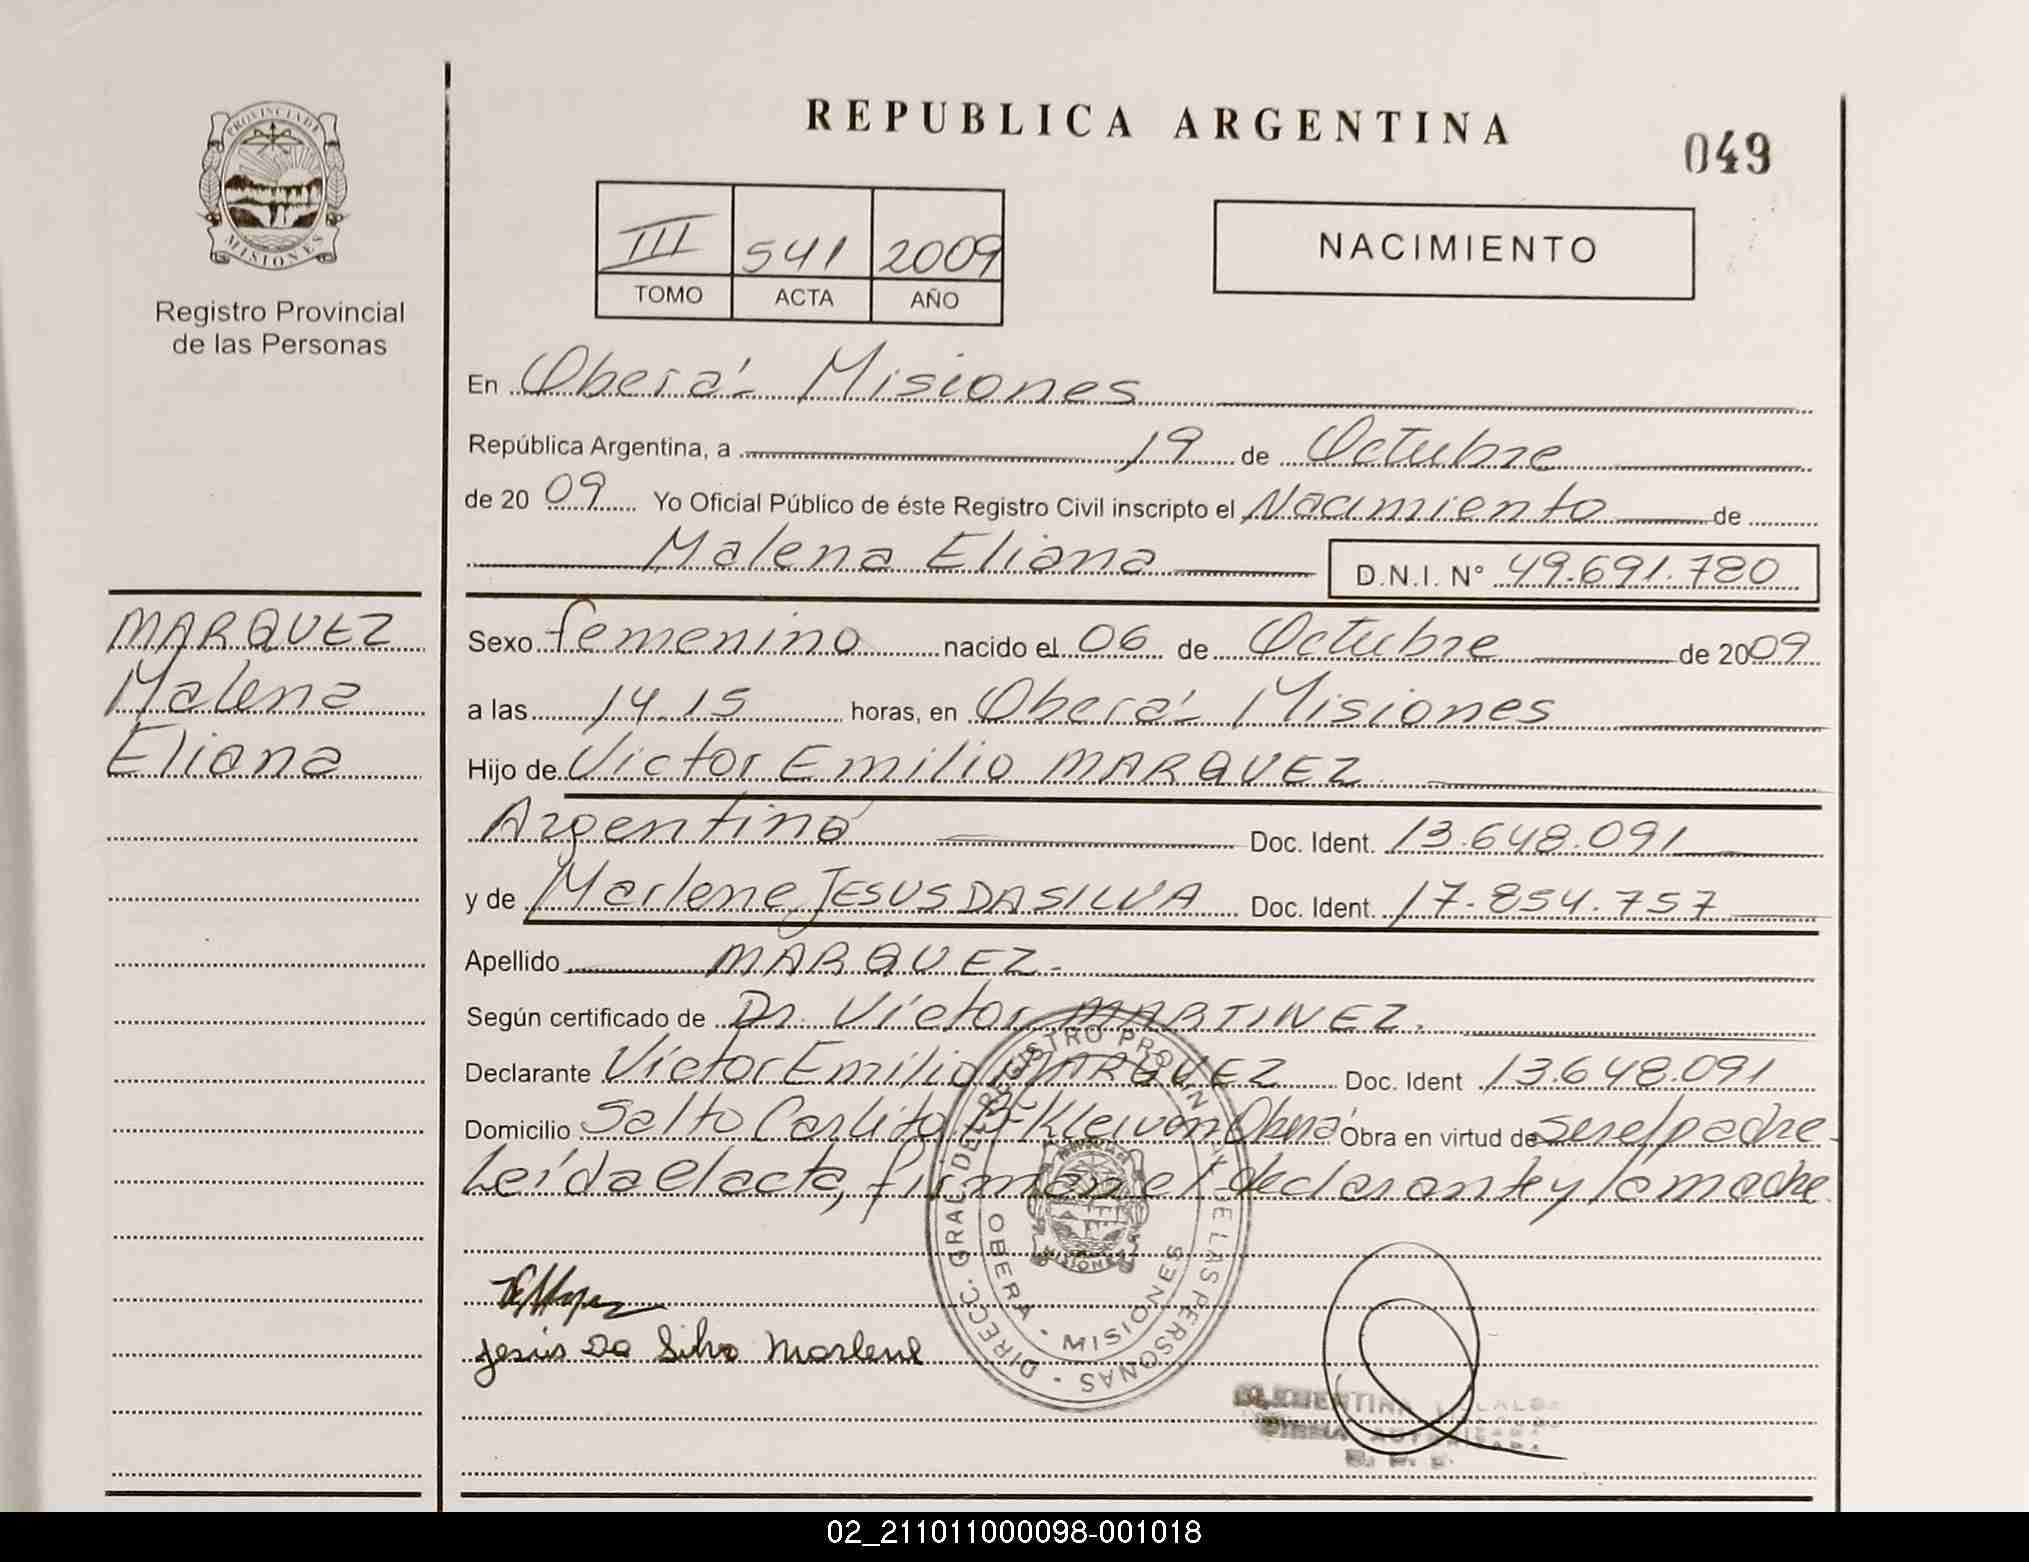 PROVINCIA DE
MISIONES
Registro Provincial
de las Personas
REPUBLICA ARGENTINA
049
III 541 2009
TOMO ACTA AÑO
NACIMIENTO
En Oberá: Misiones
República Argentina, a 19 de Octubre
de 2009 Yo Oficial Público de éste Registro Civil inscripto el Nacimiento de
Malena Eliana D.N.I. N° 49.691.780
MARQUEZ
Malena
Eliana
Sexo femenino nacido el 06 de Octubre de 2009
a las 14.15 horas, en Oberá: Misiones
Hijo de Victor Emilio MARQUEZ
Argentino Doc. Ident. 13.648.091
y de Marlene JESUS DA SILVA Doc. Ident. 17.854.757
Apellido MARQUEZ.
Según certificado de Dr. Víctor MARTINEZ.
Declarante Víctor Emilio MARQUEZ Doc. Ident 13.648.091
Domicilio Salto Carlito Bº Kleivon Oberá Obra en virtud de ser el padre.
Leída el acta, firman el declarante y la madre.
DIRECC. GRAL DE REGISTRO PROVINCIAL DE LAS PERSONAS
OBERA - MISIONES
MISIONES
Jesús Da Silva Marlene
CLEMENTINA
FIRMA AUTORIZADA
02_211011000098-001018